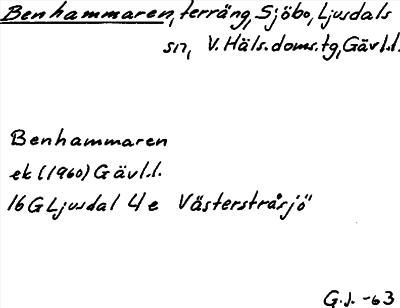 Benhammaren, terräng, Sjöbo, Ljusdals
sn, V. Häls. doms. tg, Gävl.l.
Benhammaren
ek (1960) Gävl.l.
16G Ljusdal 4e Västerstråsjö
G.J. -63